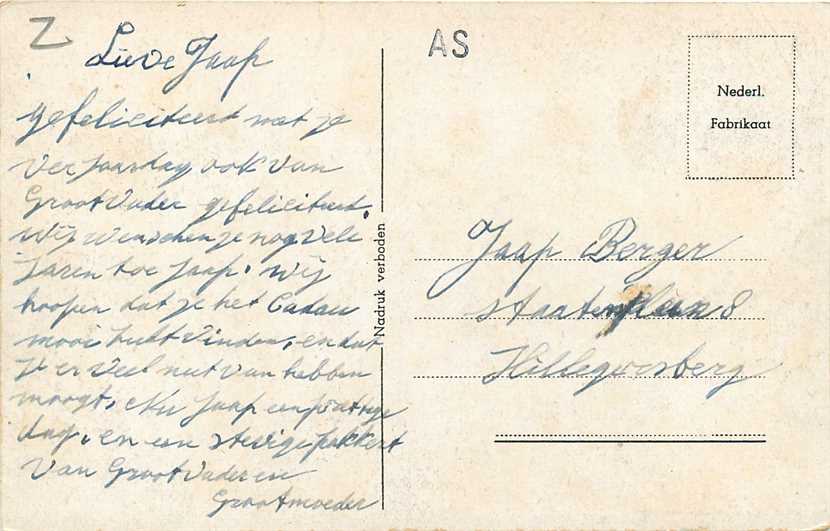 Z
Lieve Jaap
gefeliciteerd met je
verjaardag, ook van
Grootvader gefeliciteerd.
Wij wenschen je nog vele
jaren toe Jaap. Wij
hoopen dat je het Cadau
mooi hebt vinden, en dat
je er veel nut van hebben
moogt, Nu Jaap een prettige
dag, en een stevige pakkert
van Grootvader en
Grootmoeder
Nadruk verboden
AS
Nederl.
Fabrikaat
Jaap Berger
Staatenplein 8
Hillegersberg